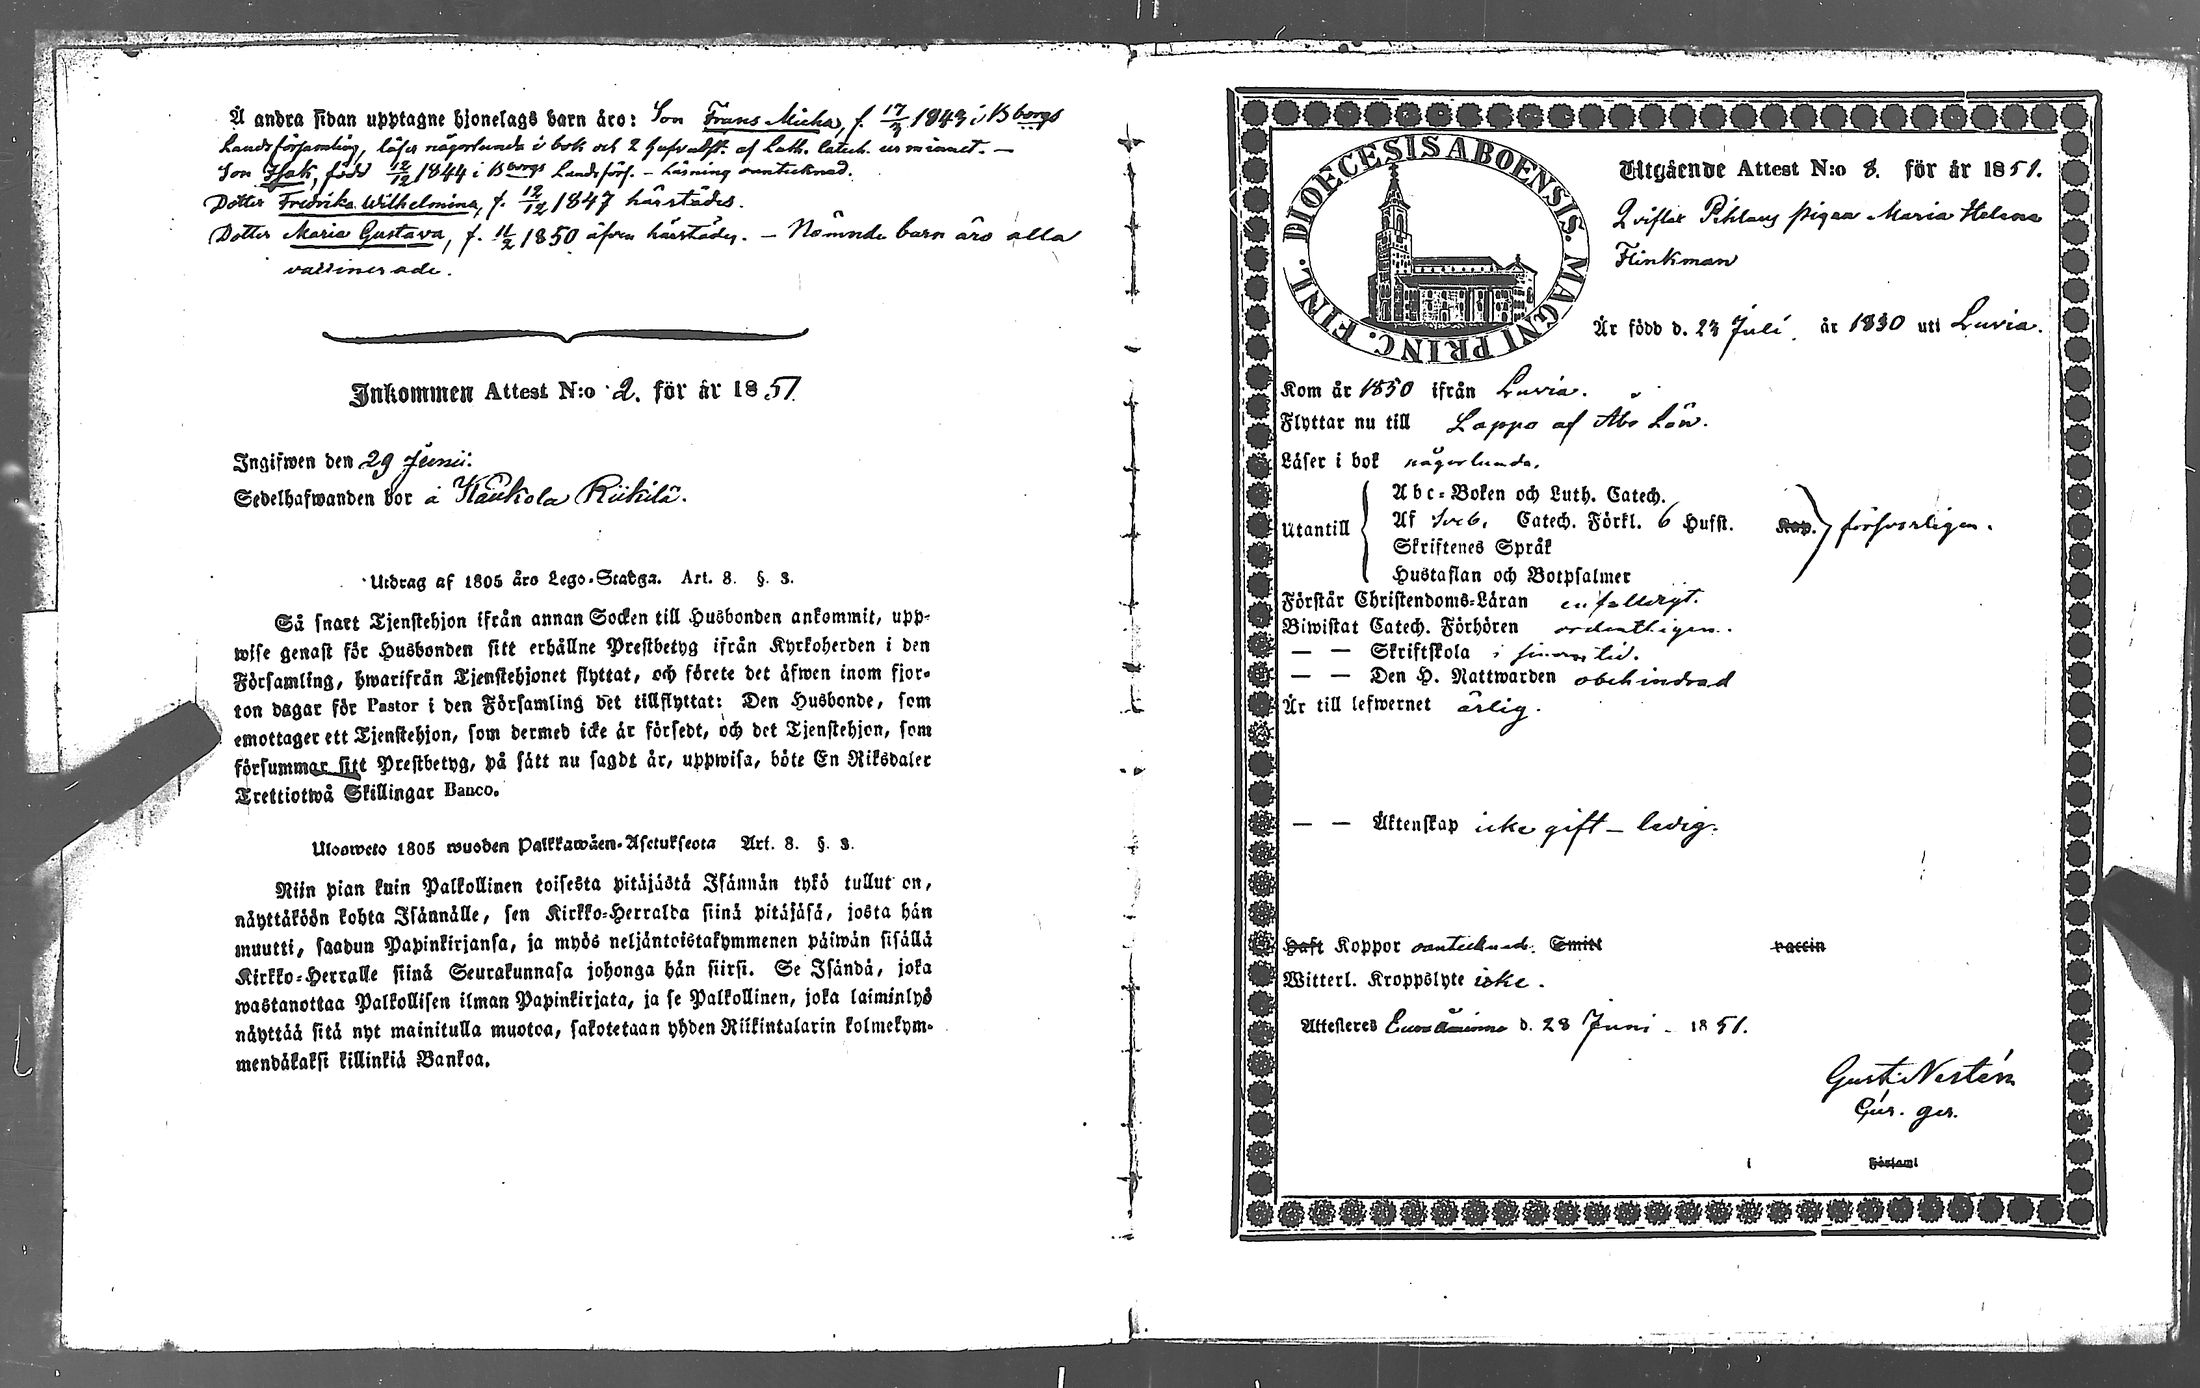 Å andra sidan upptagne hjonelags barn äro: Son Frans Micha, f. 17/3 1843 i B borgs
Landsförsamling, läser någorlunda i bok och 2 hufvudst. af Luth. Catech. ur minnet. —
Son Isak, född 12/12 1844 i B borgs Landsförs. – läsning oantecknad.
Dotter Fredrika Wilhelmina, f. 12/12 1847 härstädes.
Dotter Maria Gustava, f. 11/2 1850 äfven härstädes. — Nämnde barn äro alla
vaccinerade.
Inkommen Attest N:o 2. för år 1851
Ingifwen den 29 Junii.
Sedelhafwanden bor å Kaukola Riikilä.
Utdrag af 1805 års Lego-Stadga. Art. 8. §. 3.
Så snart Tjenstehjon ifrån annan Socken till Husbonden ankommit, upp-
wise genast för Husbonden sitt erhållne Prestbetyg ifrån Kyrkoherden i den
Församling, hwarifrån Tjenstehjonet flyttat, och förete det äfwen inom fjor-
ton dagar för Pastor i den Församling det tillflyttat: Den Husbonde, som
emottager ett Tjenstehjon, som dermed icke är försedt, och det Tjenstehjon, som
försummar sitt Prestbetyg, på sätt nu sagdt är, uppwisa, böte En Riksdaler
Trettiotwå Skillingar Banco.
Ulosweto 1805 wuoden Palkkawäen-Asetuksesta Art. 8. §. 3.
Niin pian kuin Palkollinen toisesta pitäjästä Isännän tykö tullut on,
näyttäköön kohta Isännälle, sen Kirkko-Herralda siinä pitäjäsä, josta hän
muutti, saadun Papinkirjansa, ja myös neljäntoistakymmenen päiwän sisällä
Kirkko-Herralle siinä Seurakunnasa johonga hän siirsi. Se Isändä, joka
wastanottaa Palkollisen ilman Papinkirjata, ja se Palkollinen, joka laiminlyö
näyttää sitä nyt mainitulla muotoa, sakotetaan yhden Riikintalarin kolmekym-
mendäkaksi killinkiä Bankoa.
DIOECESIS ABOENSIS. MAGNI PRINC. FINL.
Utgående Attest N:o 8. för år 1851.
Qvislax Pihlaus pigan Maria Helena
Flinkman
Är född d. 23 Juli. år 1830 uti Luvia.
Kom år 1850 ifrån Luvia.
Flyttar nu till Lappo af Åbo Län.
Läser i bok någorlunda.
Utantill
Abc-Boken och Luth. Catech.
Af Sveb. Catech. Förkl. 6 Hufst. Kap.
Skriftenes Språk
Hustaflan och Botpsalmer
försvarligen.
Förstår Christendoms-Läran enfaldigt.
Biwistat Catech. Förhören ordentligen.
— — Skriftskola i sinom tid.
— — Den H. Nattwarden obehindrad
Är till lefwernet ärlig.
— — Äktenskap icke gift – ledig.
Haft Koppor oantecknad. Smitt vaccin
Witterl. Kroppslyte icke.
Attesteres Euraåminne d. 28 Juni – 1851.
Gust. Nestén
i Församl